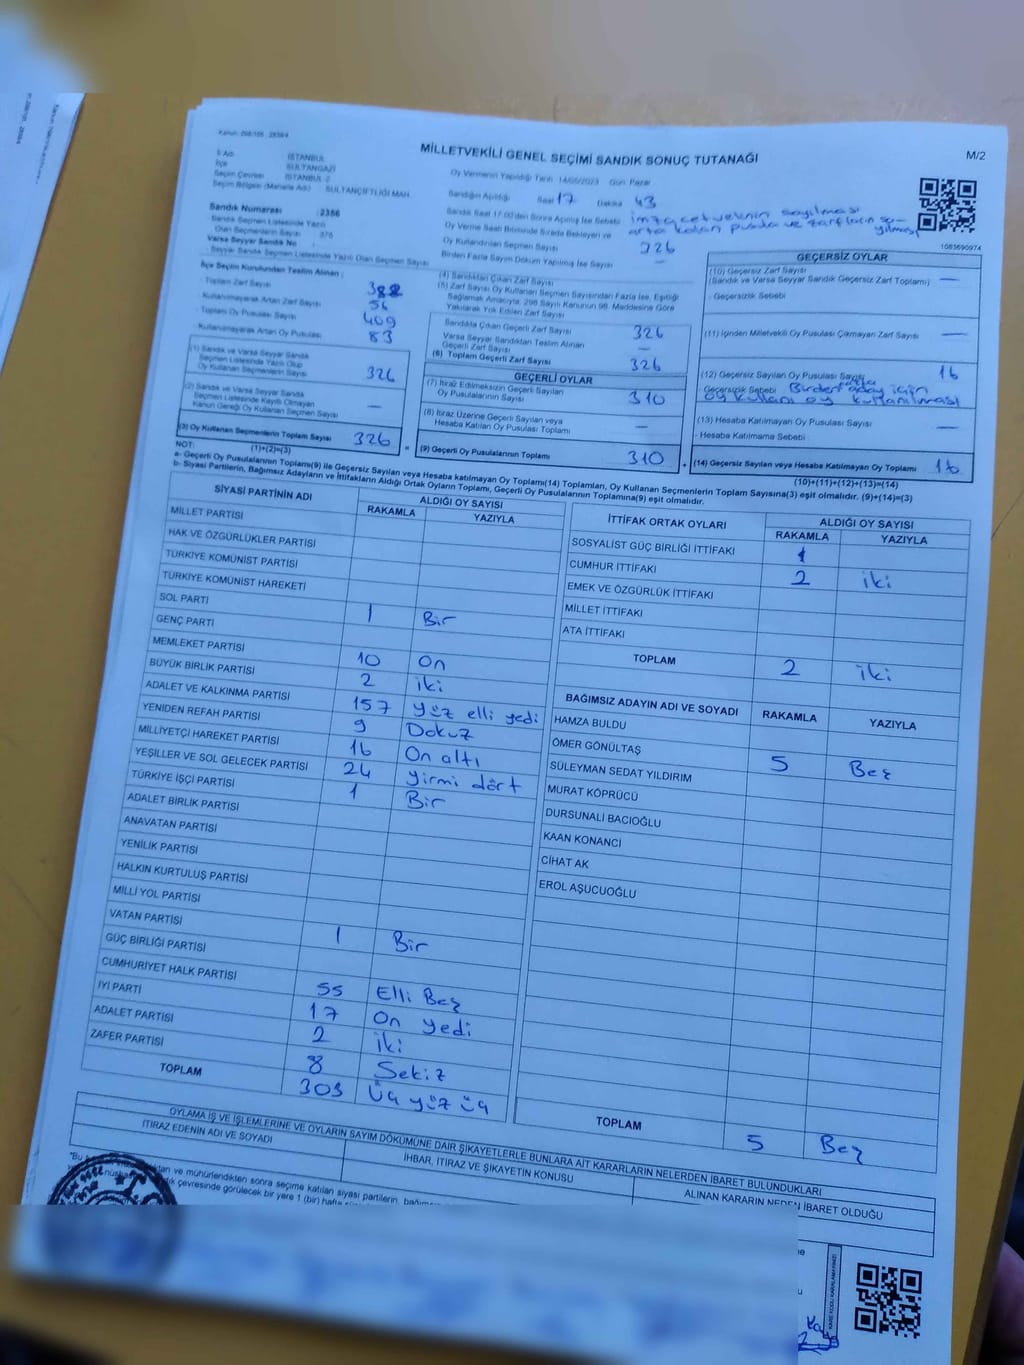 Kanun: 298/105 , 2839/4
MİLLETVEKİLİ GENEL SEÇİMİ SANDIK SONUÇ TUTANAĞI
M/2
İl Adı : İSTANBUL
İlçe SULTANGAZİ
Seçim Çevresi İSTANBUL-2
Seçim Bölgesi (Mahalle Adı) SULTANÇİFTLİĞİ MAH.
Oy Vermenin Yapıldığı Tarih 14/05/2023 Gün: Pazar
Sandığın Açıldığı Saat 17 Dakika 43
Sandık Saat 17:00'den Sonra Açılmış İse Sebebi imza cetvelinin sayılması
arta kalan pusula ve zarfların sayılması
Sandık Numarası : 2356
Sandık Seçmen Listesinde Yazılı
Olan Seçmenlerin Sayısı 375
Varsa Seyyar Sandık No
Seyyar Sandık Seçmen Listesinde Yazılı Olan Seçmen Sayısı
Oy Verme Saati Bitiminde Sırada Bekleyen ve
Oy Kullandırılan Seçmen Sayısı 326
Birden Fazla Sayım Döküm Yapılmış İse Sayısı —
1083690974
İlçe Seçim Kurulundan Teslim Alınan :
Toplam Zarf Sayısı 382
Kullanılmayarak Artan Zarf Sayısı 56
Toplam Oy Pusulası Sayısı 409
Kullanılmayarak Artan Oy Pusulası 83
(1) Sandık ve Varsa Seyyar Sandık
Seçmen Listesinde Yazılı Olup
Oy Kullanan Seçmenlerin Sayısı 326
(2) Sandık ve Varsa Seyyar Sandık
Seçmen Listelerinde Kayıtlı Olmayan
Kanun Gereği Oy Kullanan Seçmen Sayısı —
(3) Oy Kullanan Seçmenlerin Toplam Sayısı 326
(1)+(2)=(3)
(4) Sandıktan Çıkan Zarf Sayısı
(5) Zarf Sayısı Oy Kullanan Seçmen Sayısından Fazla İse, Eşitliği
Sağlamak Amacıyla; 298 Sayılı Kanunun 98. Maddesine Göre
Yakılarak Yok Edilen Zarf Sayısı
Sandıkta Çıkan Geçerli Zarf Sayısı 326
Varsa Seyyar Sandıktan Teslim Alınan
Geçerli Zarf Sayısı —
(6) Toplam Geçerli Zarf Sayısı 326
GEÇERLİ OYLAR
(7) İtiraz Edilmeksizin Geçerli Sayılan
Oy Pusulalarının Sayısı 310
(8) İtiraz Üzerine Geçerli Sayılan veya
Hesaba Katılan Oy Pusulası Toplamı —
(9) Geçerli Oy Pusulalarının Toplamı 310
GEÇERSİZ OYLAR
(10) Geçersiz Zarf Sayısı
(Sandık ve Varsa Seyyar Sandık Geçersiz Zarf Toplamı) —
- Geçersizlik Sebebi
(11) İçinden Milletvekili Oy Pusulası Çıkmayan Zarf Sayısı —
(12) Geçersiz Sayılan Oy Pusulası Sayısı 16
Geçersizlik Sebebi Birden fazla aday için
oy kullanılması
(13) Hesaba Katılmayan Oy Pusulası Sayısı —
- Hesaba Katılmama Sebebi
(14) Geçersiz Sayılan veya Hesaba Katılmayan Oy Toplamı 16
(10)+(11)+(12)+(13)=(14)
NOT:
a- Geçerli Oy Pusulalarının Toplamı(9) ile Geçersiz Sayılan veya Hesaba katılmayan Oy Toplamı(14) Toplamları, Oy Kullanan Seçmenlerin Toplam Sayısına(3) eşit olmalıdır. (9)+(14)=(3)
b- Siyasi Partilerin, Bağımsız Adayların ve İttifakların Aldığı Ortak Oyların Toplamı, Geçerli Oy Pusulalarının Toplamına(9) eşit olmalıdır.
SİYASİ PARTİNİN ADI
ALDIĞI OY SAYISI
RAKAMLA YAZIYLA
MİLLET PARTİSİ
HAK VE ÖZGÜRLÜKLER PARTİSİ
TÜRKİYE KOMÜNİST PARTİSİ
TÜRKİYE KOMÜNİST HAREKETİ
SOL PARTİ
GENÇ PARTİ 1 Bir
MEMLEKET PARTİSİ 10 On
BÜYÜK BİRLİK PARTİSİ 2 iki
ADALET VE KALKINMA PARTİSİ 157 yüz elli yedi
YENİDEN REFAH PARTİSİ 9 Dokuz
MİLLİYETÇİ HAREKET PARTİSİ 16 On altı
YEŞİLLER VE SOL GELECEK PARTİSİ 24 yirmi dört
TÜRKİYE İŞÇİ PARTİSİ 1 Bir
ADALET BİRLİK PARTİSİ
ANAVATAN PARTİSİ
YENİLİK PARTİSİ
HALKIN KURTULUŞ PARTİSİ
MİLLİ YOL PARTİSİ
VATAN PARTİSİ
GÜÇ BİRLİĞİ PARTİSİ 1 Bir
CUMHURİYET HALK PARTİSİ 55 Elli Beş
İYİ PARTİ 17 On yedi
ADALET PARTİSİ 2 iki
ZAFER PARTİSİ 8 Sekiz
TOPLAM 303 Üç yüz üç
İTTİFAK ORTAK OYLARI
ALDIĞI OY SAYISI
RAKAMLA YAZIYLA
SOSYALİST GÜÇ BİRLİĞİ İTTİFAKI
CUMHUR İTTİFAKI 2 iki
EMEK VE ÖZGÜRLÜK İTTİFAKI
MİLLET İTTİFAKI
ATA İTTİFAKI
TOPLAM 2 iki
BAĞIMSIZ ADAYIN ADI VE SOYADI RAKAMLA YAZIYLA
HAMZA BULDU
ÖMER GÖNÜLTAŞ 5 Beş
SÜLEYMAN SEDAT YILDIRIM
MURAT KÖPRÜCÜ
DURSUNALİ BACIOĞLU
KAAN KONANCI
CİHAT AK
EROL AŞUCUOĞLU
TOPLAM 5 Beş
OYLAMA İŞ VE İŞLEMLERİNE VE OYLARIN SAYIM DÖKÜMÜNE DAİR ŞİKAYETLERLE BUNLARA AİT KARARLARIN NELERDEN İBARET BULUNDUKLARI
İTİRAZ EDENİN ADI VE SOYADI
İHBAR, İTİRAZ VE ŞİKAYETİN KONUSU
ALINAN KARARIN NEDEN İBARET OLDUĞU
ve mühürlendikten sonra seçime katılan siyasi partilerin,
çevresinde görülecek bir yere 1 (bir) hafta